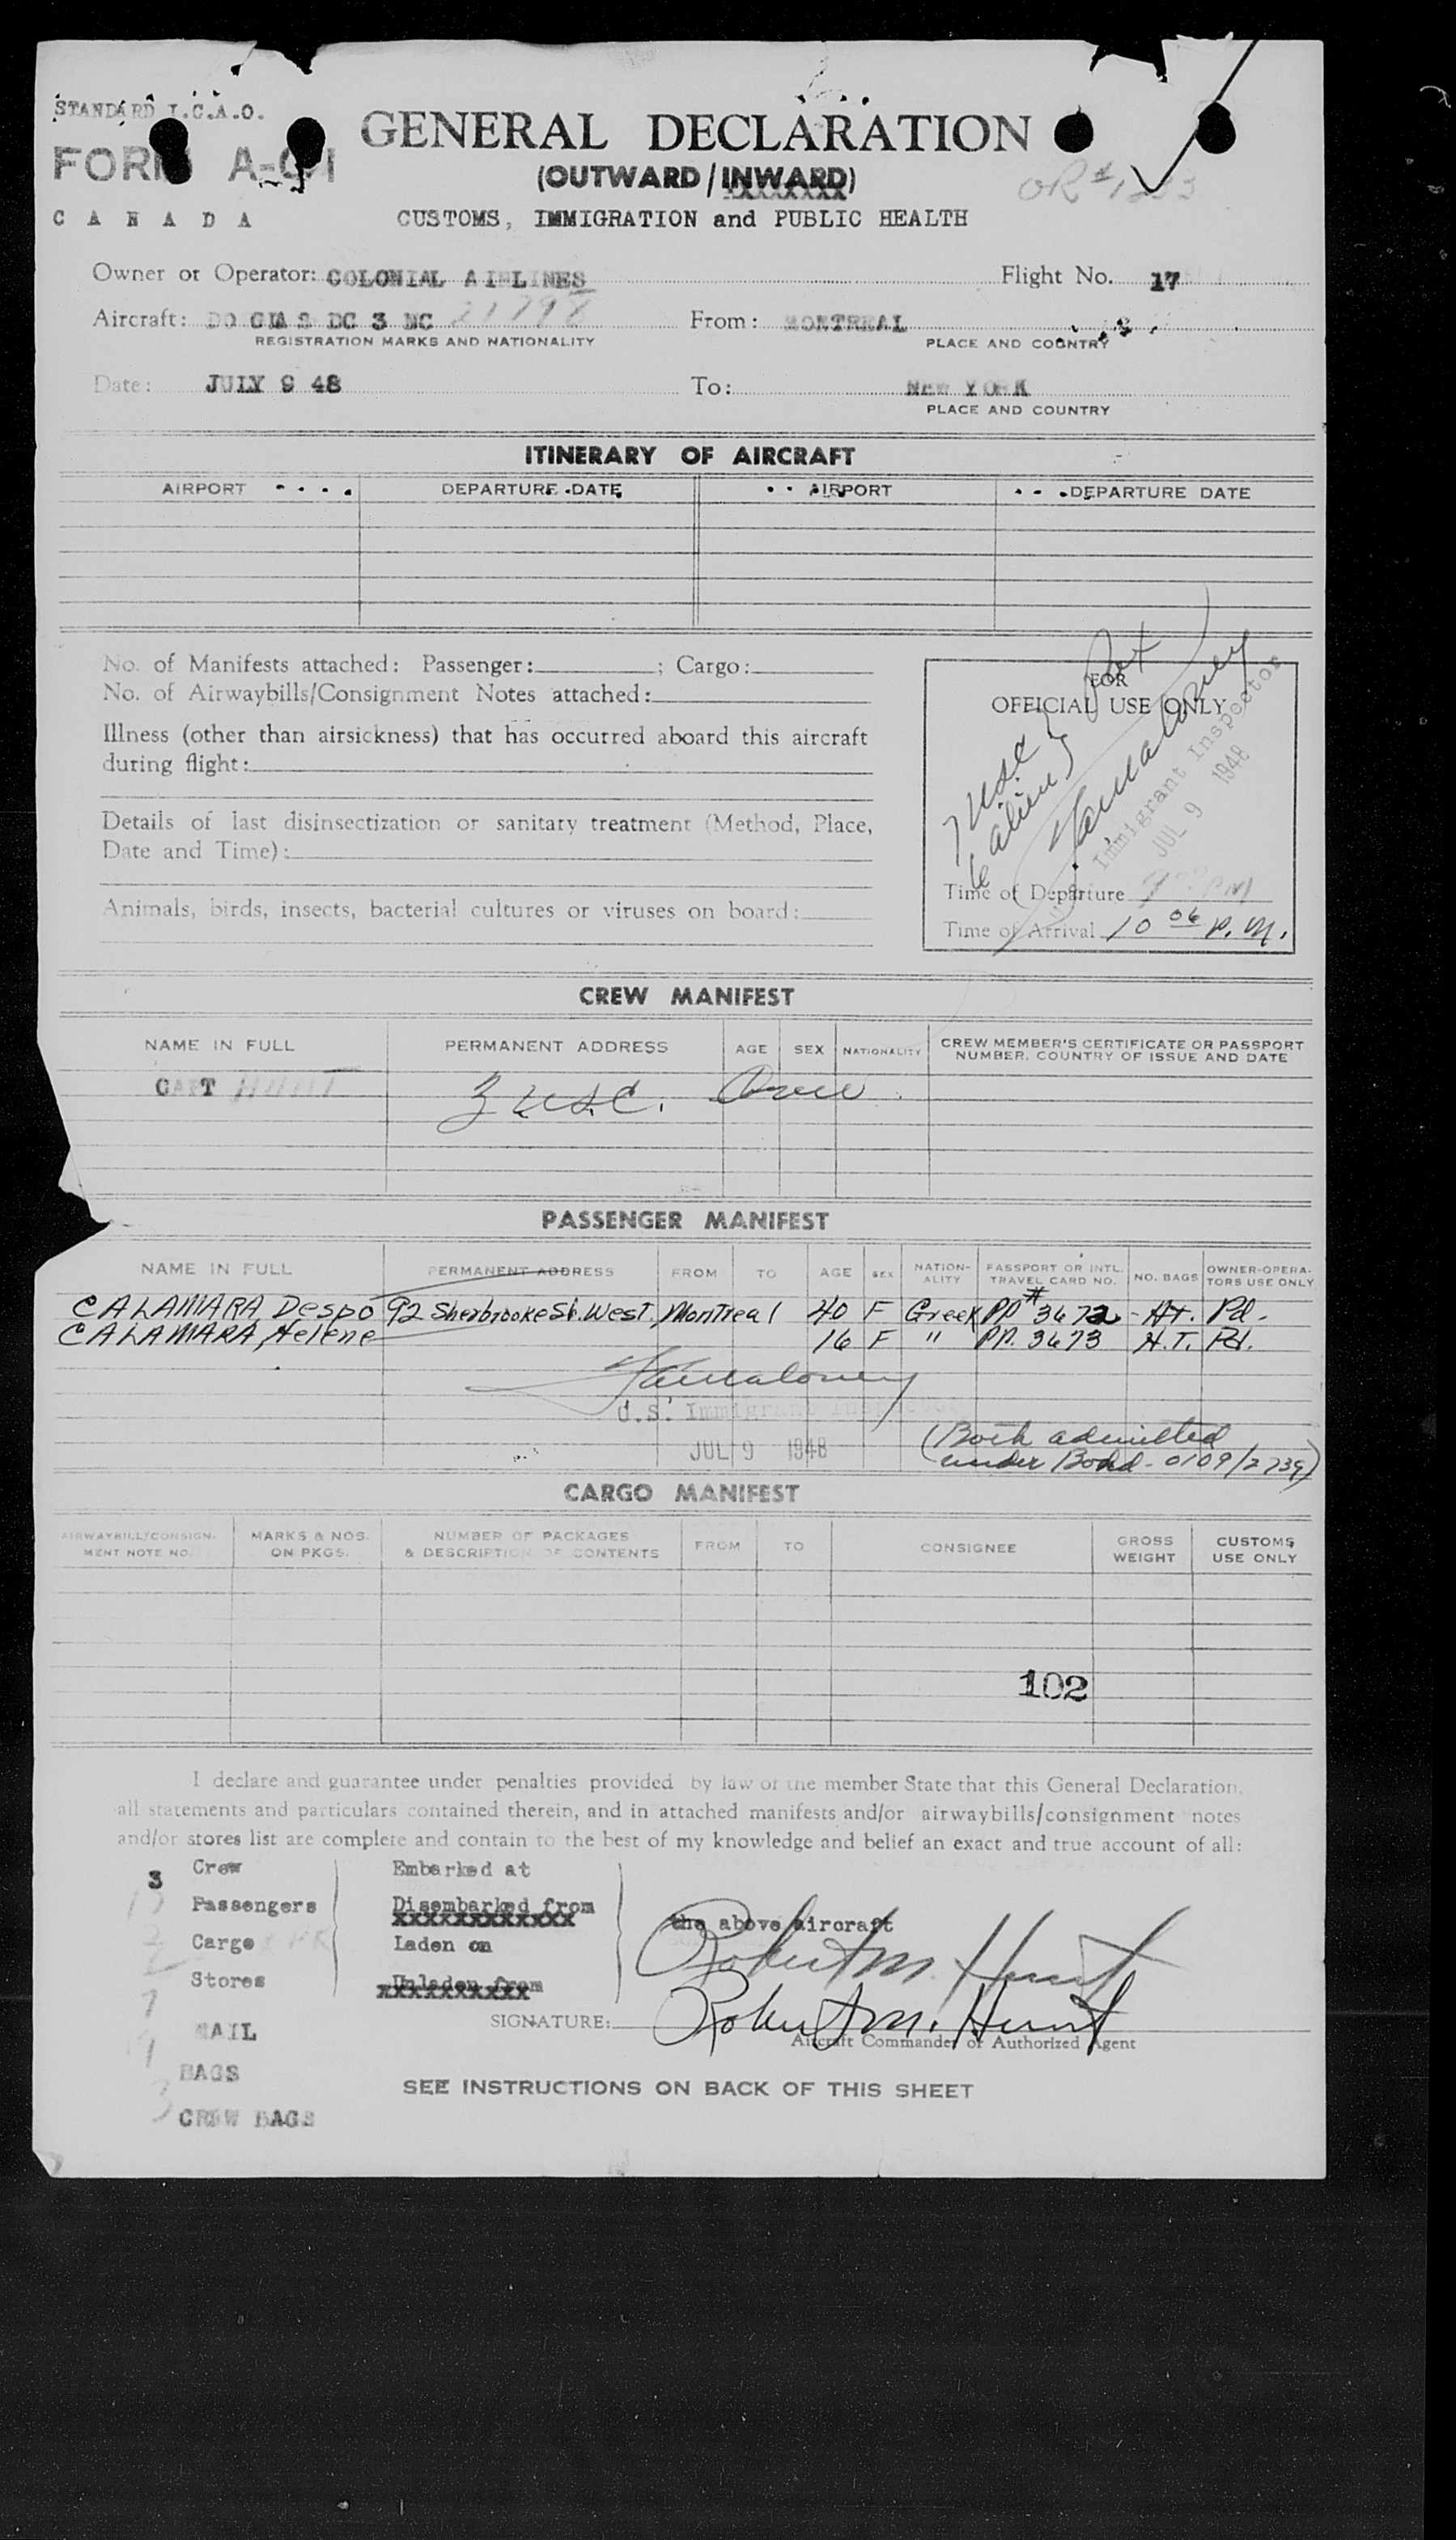 STANDARD I.C.A.O.
FORM A-01
CANADA
GENERAL DECLARATION
(OUTWARD/INWARD)
CUSTOMS, IMMIGRATION and PUBLIC HEALTH
OR #
Owner or Operator: COLONIAL AIRLINES Flight No. 17
Aircraft: DOUGLAS DC 3 NC 21798 From: MONTREAL
REGISTRATION MARKS AND NATIONALITY PLACE AND COUNTRY
Date: JULY 9 48 To: NEW YORK
PLACE AND COUNTRY
ITINERARY OF AIRCRAFT
AIRPORT DEPARTURE DATE AIRPORT DEPARTURE DATE
No. of Manifests attached: Passenger: ; Cargo:
No. of Airwaybills/Consignment Notes attached:
Illness (other than airsickness) that has occurred aboard this aircraft
during flight:
Details of last disinsectization or sanitary treatment (Method, Place,
Date and Time):
Animals, birds, insects, bacterial cultures or viruses on board:
FOR
OFFICIAL USE ONLY
7 USC
aliens
Immigrant Inspector
JUL 9 1948
Time of Departure PM
Time of Arrival 10 06 P.M.
CREW MANIFEST
NAME IN FULL PERMANENT ADDRESS AGE SEX NATIONALITY CREW MEMBER'S CERTIFICATE OR PASSPORT
NUMBER, COUNTRY OF ISSUE AND DATE
CAPT HUNT 3 USC. Crew
PASSENGER MANIFEST
NAME IN FULL PERMANENT ADDRESS FROM TO AGE SEX NATION-
ALITY PASSPORT OR INTL.
TRAVEL CARD NO. NO. BAGS OWNER-OPERA-
TORS USE ONLY
CALAMARA Despo 92 Sherbrooke St. West, Montreal 40 F Greek PP # 3672 - HT. Pd.
CALAMARA, Helene 16 F " PP. 3673 H.T. Pd.
U.S. Immigrant Inspector
JUL 9 1948
(Both admitted
under Bond - 0109/2739)
CARGO MANIFEST
AIRWAYBILL/CONSIGN-
MENT NOTE NO. MARKS & NOS.
ON PKGS. NUMBER OF PACKAGES
& DESCRIPTION OF CONTENTS FROM TO CONSIGNEE GROSS
WEIGHT CUSTOMS
USE ONLY
102
I declare and guarantee under penalties provided by law of the member State that this General Declaration,
all statements and particulars contained therein, and in attached manifests and/or airwaybills/consignment notes
and/or stores list are complete and contain to the best of my knowledge and belief an exact and true account of all:
3 Crew Embarked at
Passengers Disembarked from
the above aircraft
Cargo Laden on
Stores Unladen from
Robert M. Hunt
SIGNATURE: Robert M. Hunt
Aircraft Commander or Authorized Agent
MAIL
BAGS
CREW BAGS
SEE INSTRUCTIONS ON BACK OF THIS SHEET